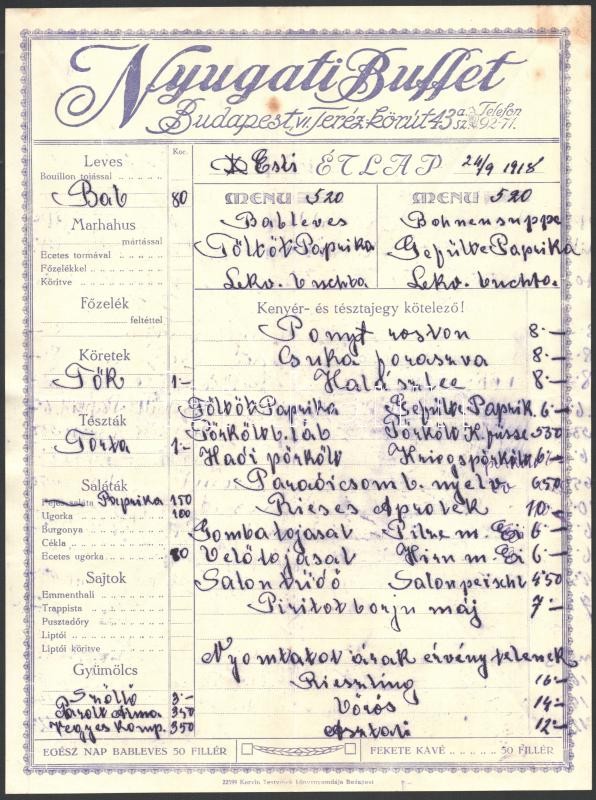 Nyugati Buffet
Budapest, VI. Teréz-körút 43. a. sz. Telefon 92-71.
Esti ÉTLAP 24/9 1918
Kor.
Leves
Bouillon tojással
Bab 80
Marhahus
mártással
Ecetes tormával
Főzelékkel
Körítve
Főzelék
feltéttel
Köretek
Tök 1-
Tészták
Torta 1-
Saláták
Fejes saláta Paprika 150
Ugorka 100
Burgonya
Cékla
Ecetes ugorka 80
Sajtok
Emmenthali
Trappista
Pusztadőry
Liptói
Liptói körítve
Gyümölcs
Szöllő 3-
Párolt Alma 350
Vegyes Komp. 350
MENU 520
Bableves
Töltöt Paprika
Lekv. buchta
MENU 520
Bohnensuppe
Gefülte Paprika
Lekv. buchta
Kenyér- és tésztajegy kötelező!
Ponyt roston 8-
Csuka poraszva 8-
Halászlee 8-
Töltöt Paprika Gefülte Paprik. 6-
Pörkölt b. láb Pörkölt K. füsse 530
Hadi pörkölt Kriegspörkölt 6-
Paradicsom b. nyelv 650
Rieses Aprolek 10-
Gombatojasal Pilze m. Ei 6-
Velötojasal Hirn m. Ei 6-
Salontüdő Salonpeischl 450
Piritot borju máj 7-
Nyomtatot árak érvénytelenek
Rieszling 16-
Vörös 14-
Asztali 12-
EGÉSZ NAP BABLEVES 50 FILLÉR
FEKETE KÁVÉ 50 FILLÉR
22599 Korvin Testvérek könyvnyomdája Budapest